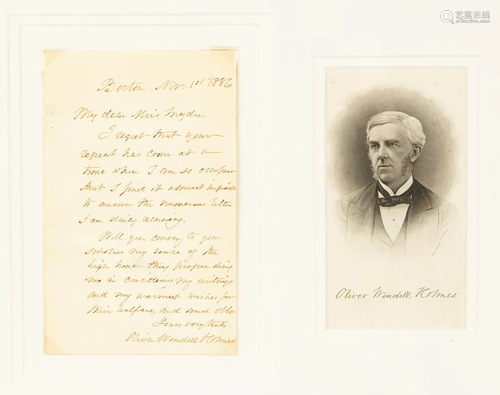 Boston, Nov. 1st 1886
My dear Miss Snyder
I regret that your
request has come at a
time when I am so occupied
that I find it almost impossible
to answer the numerous letters
I am daily receiving.
Will you convey to your
scholars my sense of the
high honor they propose doing
me in considering my writings
and my warmest wishes for
their welfare, and
Yours very truly
Oliver Wendell Holmes
Oliver Wendell Holmes
艺狐在线
artfoxlive.com